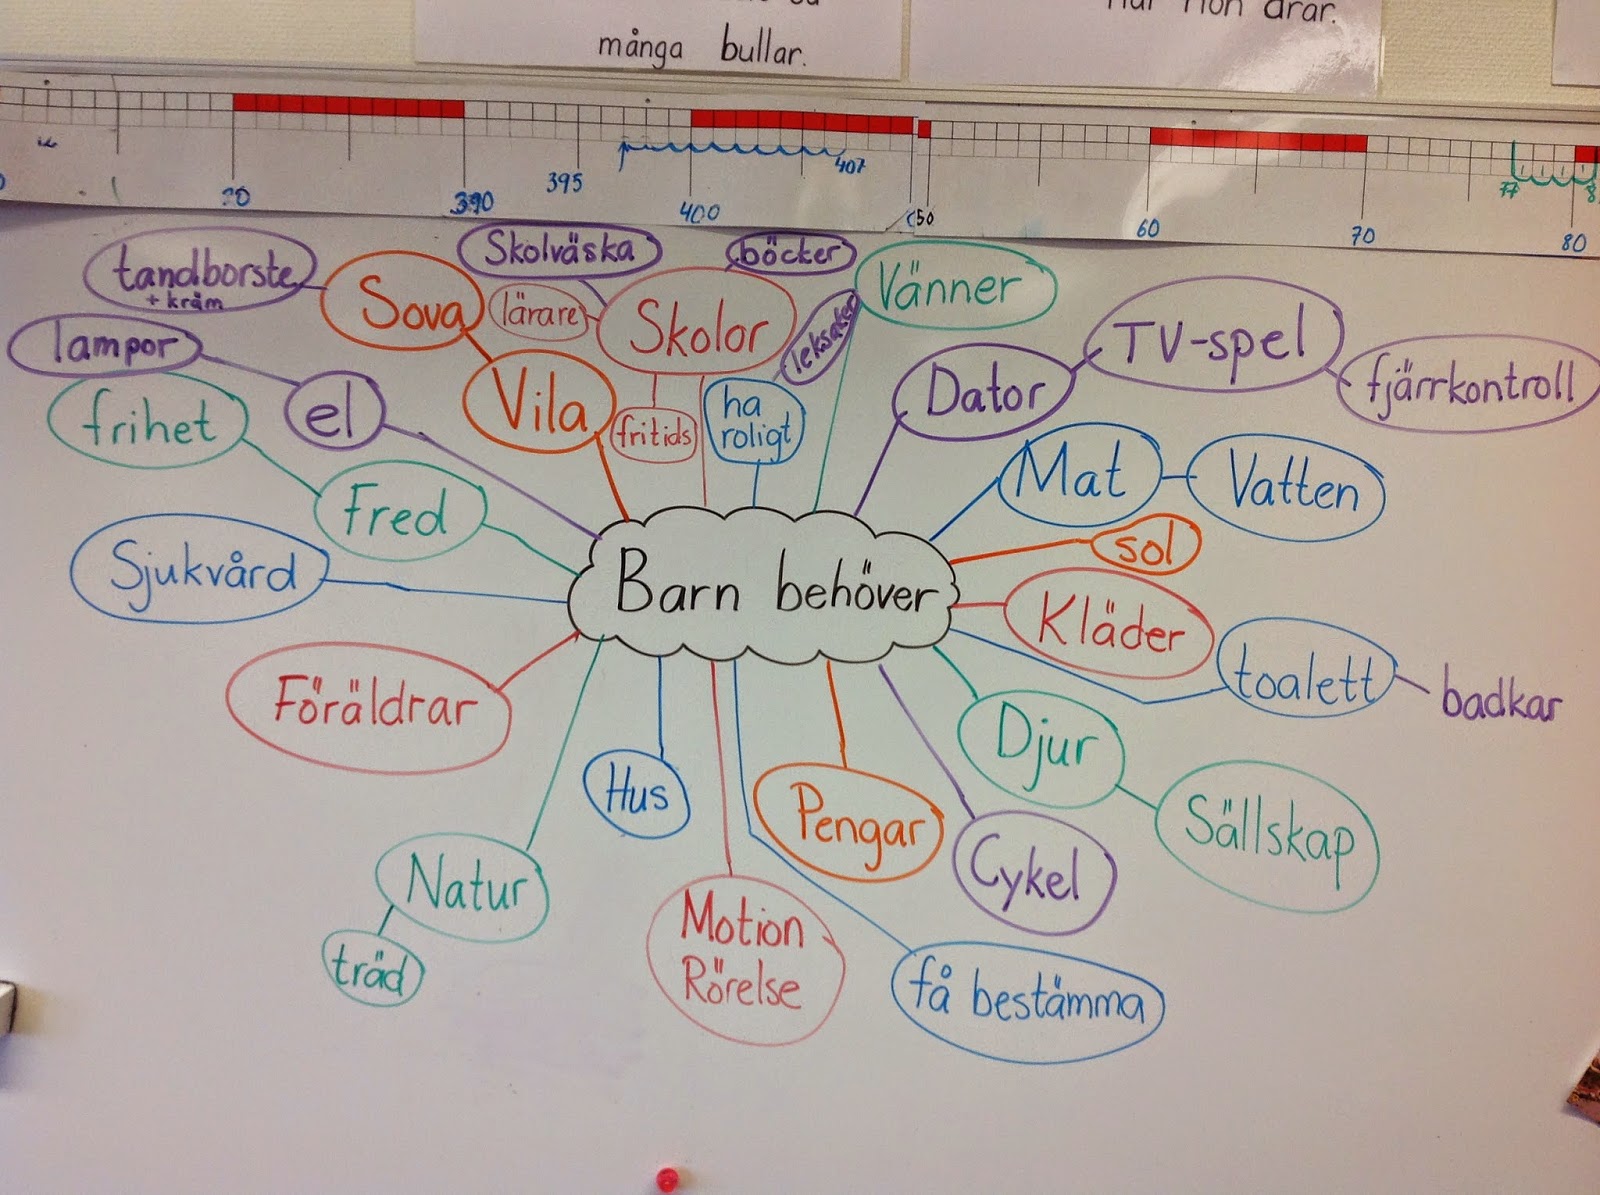 när hon drar.
många bullar.
407
395
390
400
50
60
70
77
80
Skolväska
böcker
tandborste
+ kräm
Sova
lärare
Skolor
leksaker
Vänner
lampor
el
Vila
fritids
ha
roligt
Dator
TV-spel
fjärrkontroll
frihet
Fred
Mat
Vatten
sol
Sjukvård
Barn behöver
Kläder
toalett
badkar
Föräldrar
Djur
Sällskap
Hus
Pengar
Cykel
Natur
träd
Motion
Rörelse
få bestämma